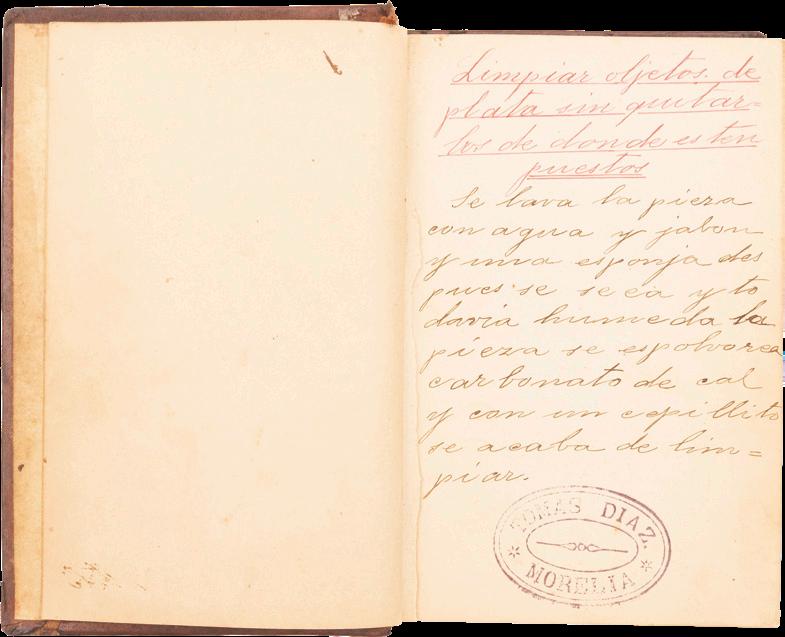 Limpiar objetos de
plata sin quitar=
los de donde esten
puestos
Se lava la pieza
con agua y jabon
y una esponja des
pues se seca y to
davia humeda la
pieza se espolvorea
carbonato de cal
y con un cepillito
se acaba de lim=
piar.
TOMAS DIAZ.
MORELIA